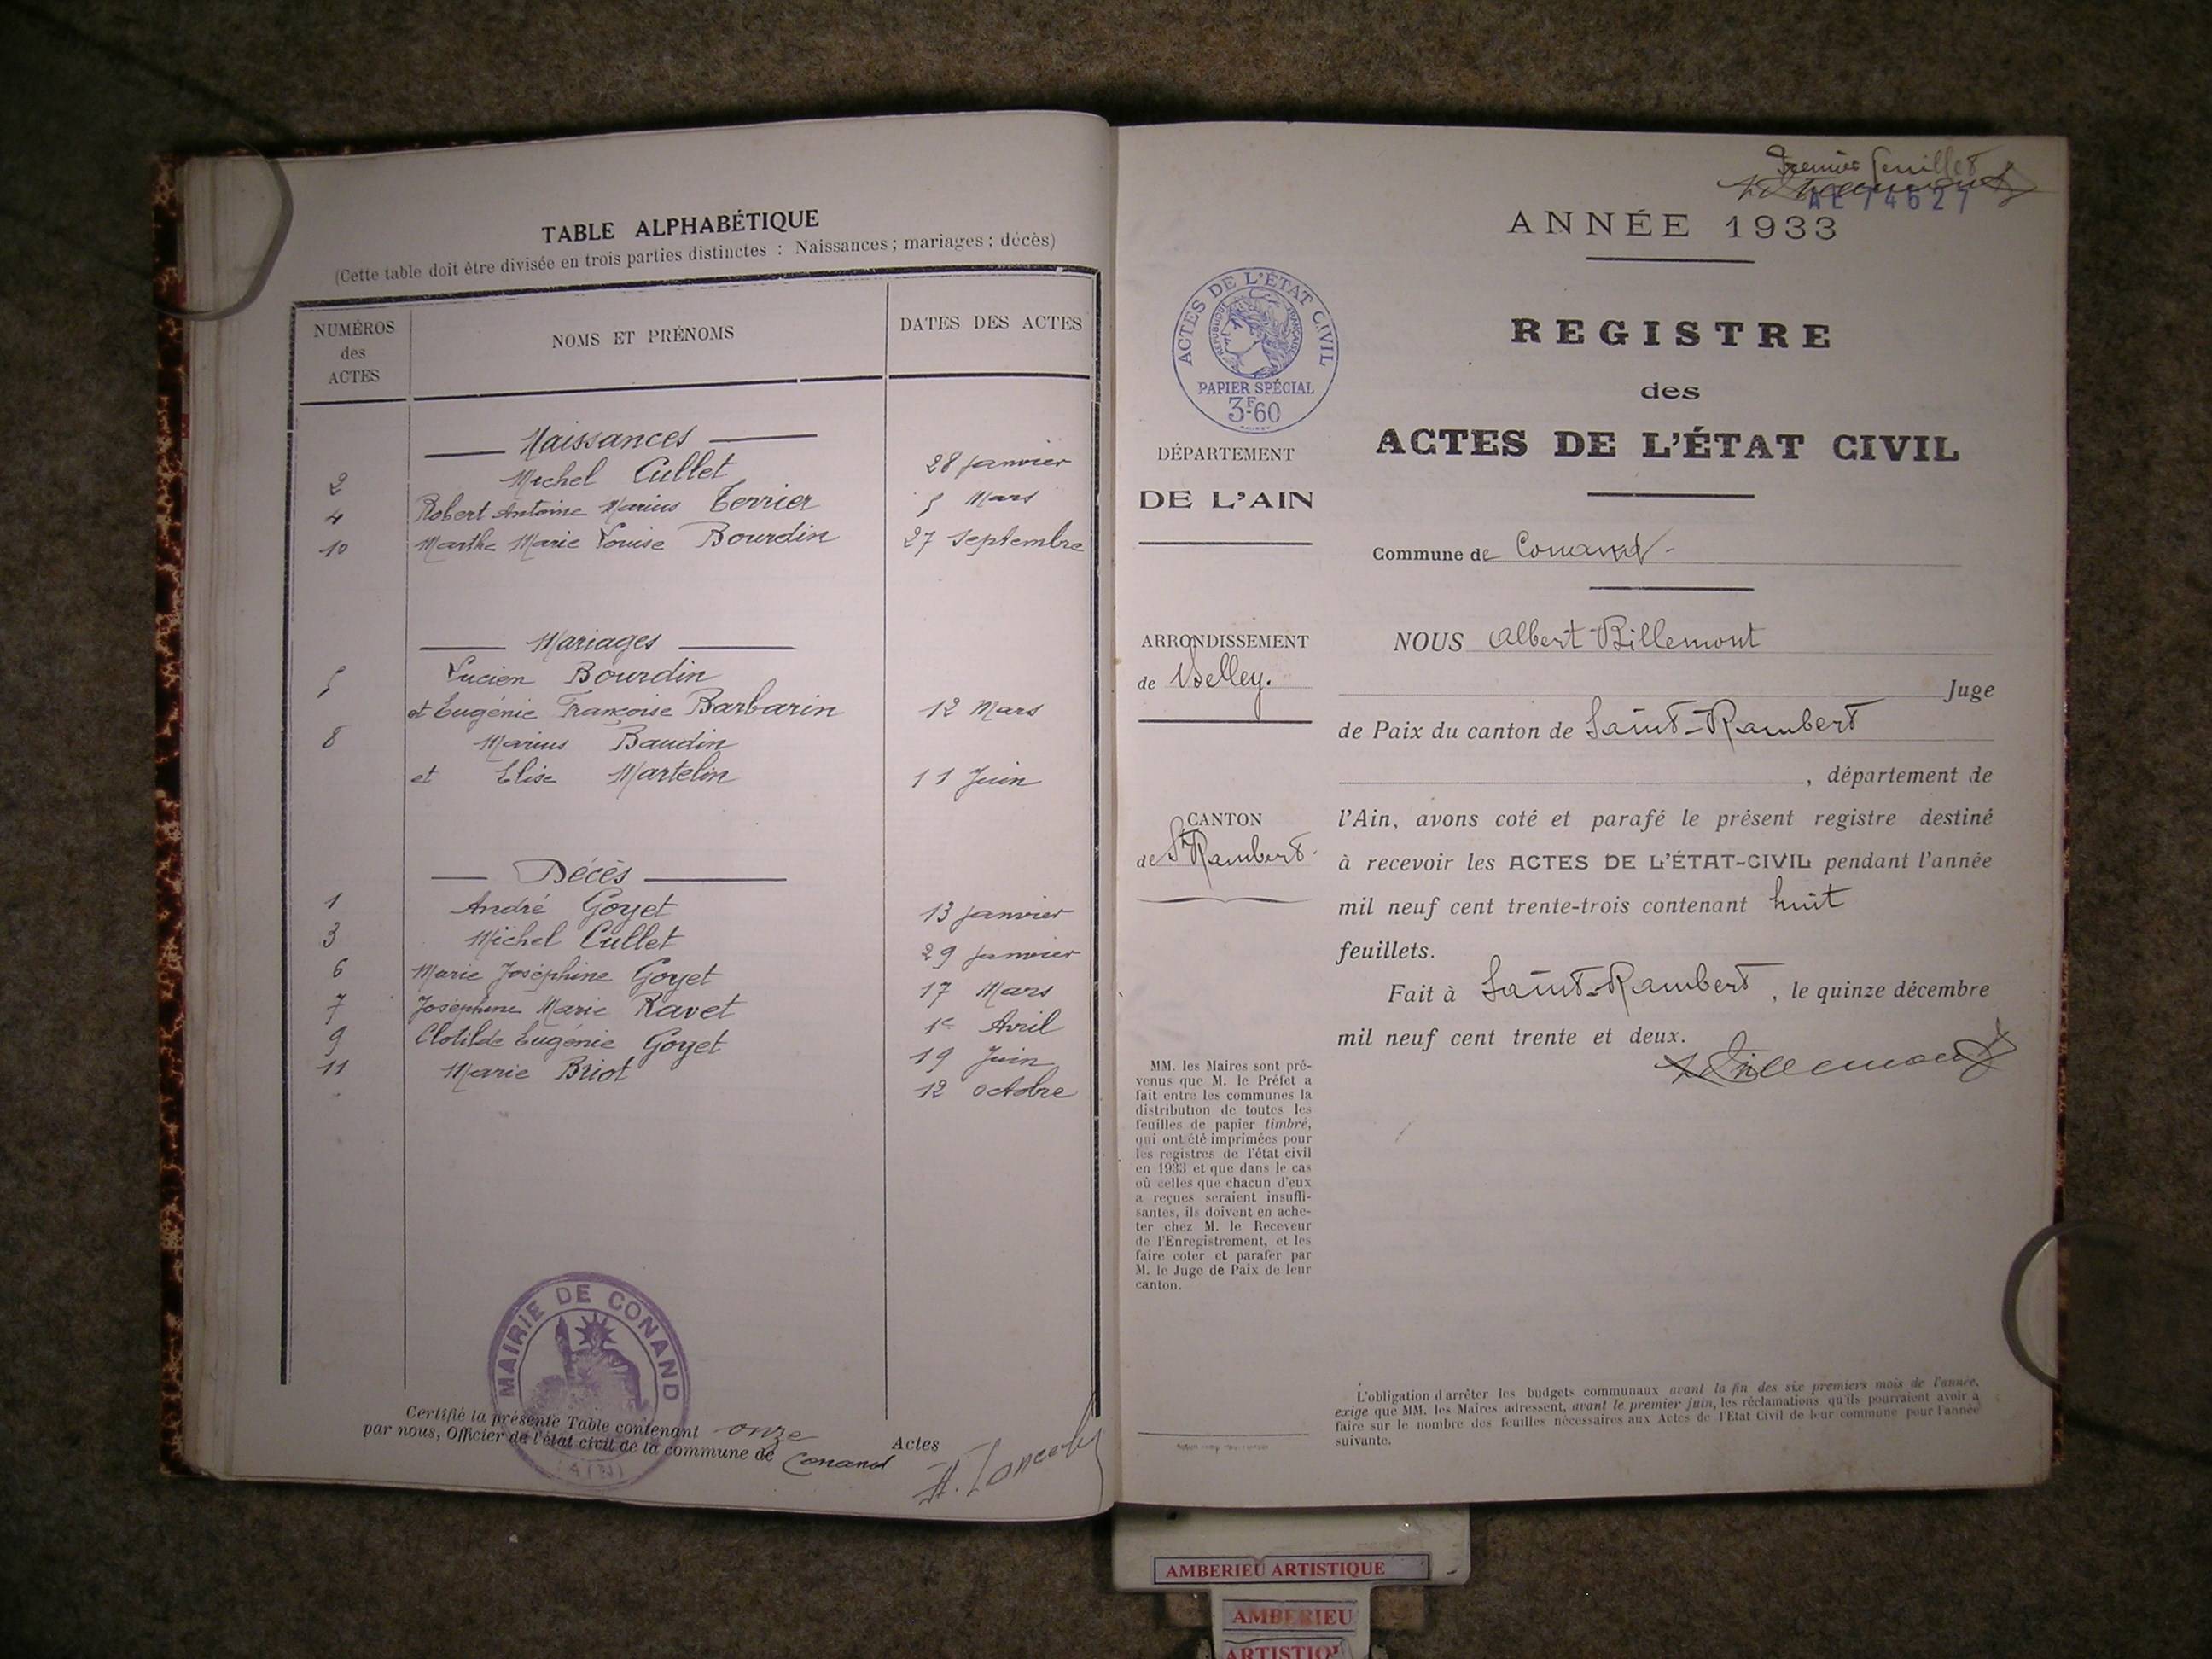 TABLE ALPHABÉTIQUE
(Cette table doit être divisée en trois parties distinctes : Naissances ; mariages ; décès)
NUMÉROS des ACTES
NOMS ET PRÉNOMS
DATES DES ACTES
Naissances
2 Michel Cullet 28 janvier
4 Robert Antoine Marius Terrier 5 Mars
10 Marthe Marie Louise Bourdin 27 Septembre
Mariages
5 Lucien Bourdin
et Eugénie Françoise Barbarin 12 Mars
8 Marius Baudin
et Elise Martelin 11 Juin
Décès
1 André Goyet 13 janvier
3 Michel Cullet 29 janvier
6 Marie Joséphine Goyet 17 Mars
7 Joséphine Marie Ravet 1e Avril
9 Clotilde Eugénie Goyet 19 Juin
11 Marie Briot 12 octobre
MAIRIE DE CONAND
(AIN)
Certifié la présente Table contenant onze Actes
par nous, Officier de l'état civil de la commune de Conand
Premier feuillet
AE 74627
ANNÉE 1933
ACTES DE L'ÉTAT CIVIL
RÉPUBLIQUE FRANÇAISE
PAPIER SPÉCIAL
3F60
REGISTRE
des
ACTES DE L'ÉTAT CIVIL
DÉPARTEMENT
DE L'AIN
Commune de Conand
ARRONDISSEMENT
de Belley.
NOUS Albert Billemont
Juge
de Paix du canton de Saint-Rambert
, département de
CANTON
de St Rambert.
l'Ain, avons coté et parafé le présent registre destiné
à recevoir les ACTES DE L'ÉTAT-CIVIL pendant l'année
mil neuf cent trente-trois contenant huit
feuillets.
Fait à Saint-Rambert, le quinze décembre
mil neuf cent trente et deux.
Billemont
MM. les Maires sont pré-
venus que M. le Préfet a
fait entre les communes la
distribution de toutes les
feuilles de papier timbré,
qui ont été imprimées pour
les registres de l'état civil
en 1933 et que dans le cas
où celles que chacun d'eux
a reçues seraient insuffi-
santes, ils doivent en ache-
ter chez M. le Receveur
de l'Enregistrement, et les
faire coter et parafer par
M. le Juge de Paix de leur
canton.
L'obligation d'arrêter les budgets communaux avant la fin des six premiers mois de l'année,
exige que MM. les Maires adressent, avant le premier juin, les réclamations qu'ils pourraient avoir a
faire sur le nombre des feuilles nécessaires aux Actes de l'Etat Civil de leur commune pour l'année
suivante.
AMBERIEU ARTISTIQUE
AMBERIEU
ARTISTIQU